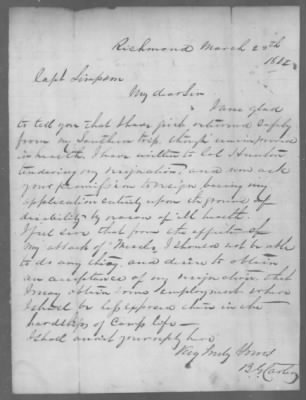 Richmond March 20th
1862
Capt Simpson
My dear Sir
I am glad
to tell you that I have just returned safely
from my Southern trip, though unimproved
in health. I have written to Col Hunton
tendering my resignation, and now ask
your permission to resign basing my
application entirely upon the ground of
disability by reason of ill health.
I feel sure that from the effects of
my attack of Measles, I should not be able
to do any thing and desire to obtain
an acceptance of my resignation that
I may obtain some employment where
I shall be less exposed than in the
hardships of Camp life —
I shall await your reply here
Very Truly Yours
B. G. Carter